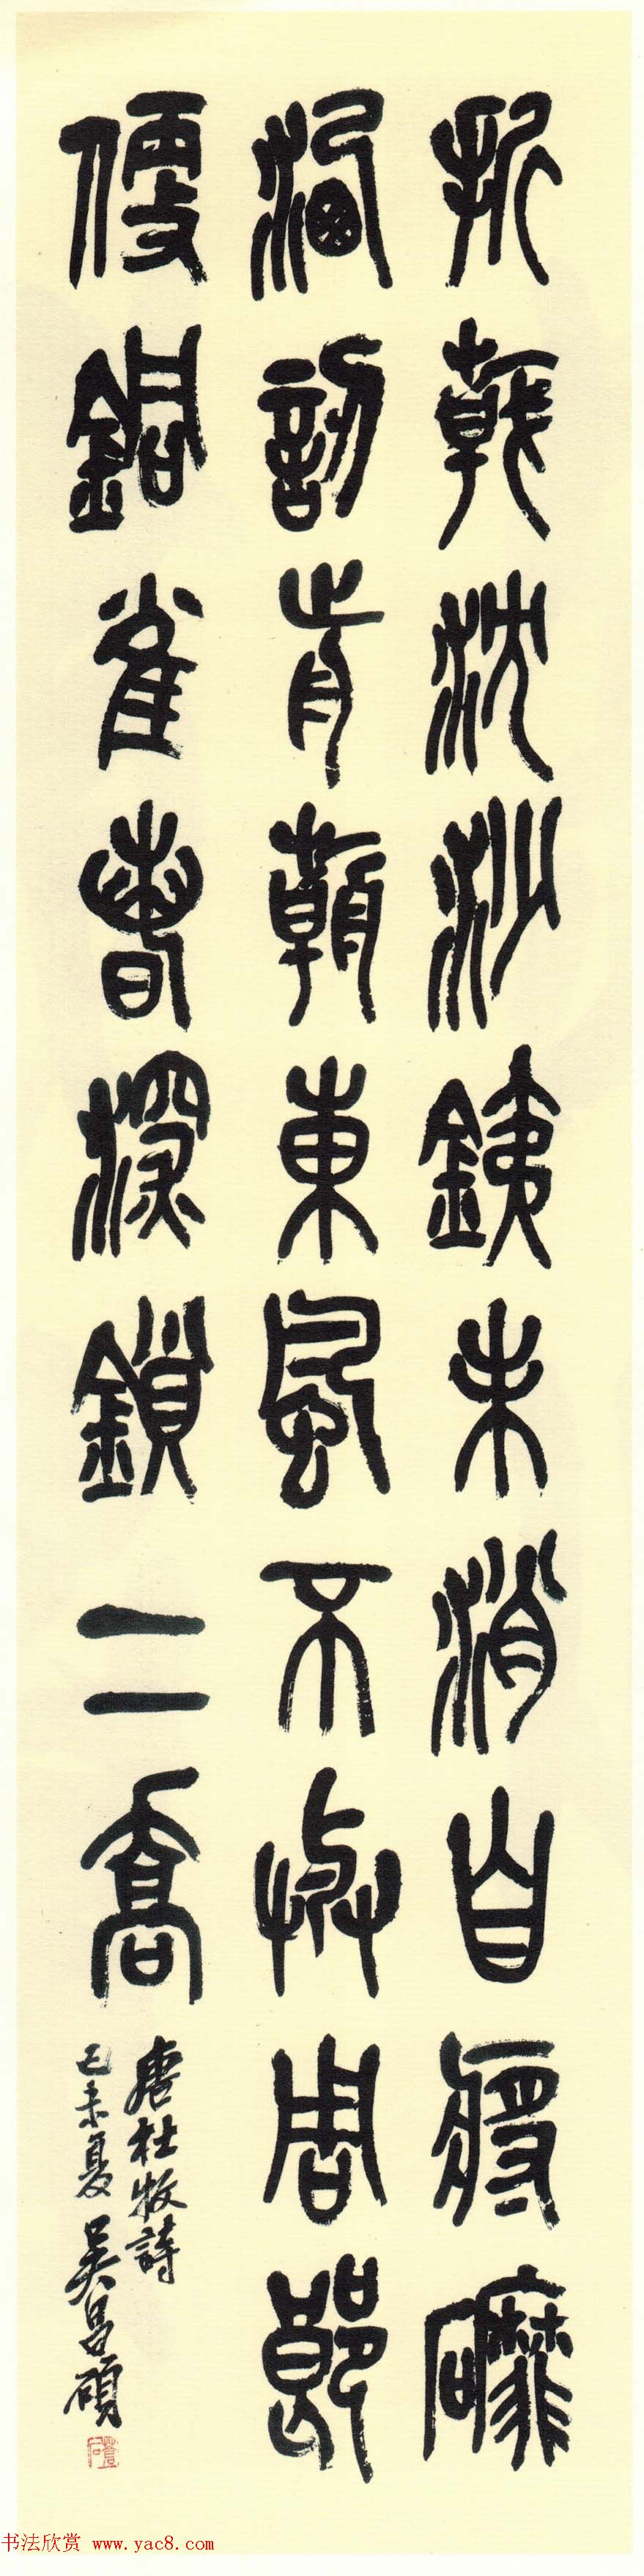 折戟沈沙銕未消自將䃺
洗訒前朝東風不與周郎
便銅雀春深鎖二喬
唐杜牧詩
己未夏吳昌碩
书法欣赏 www.yac8.com